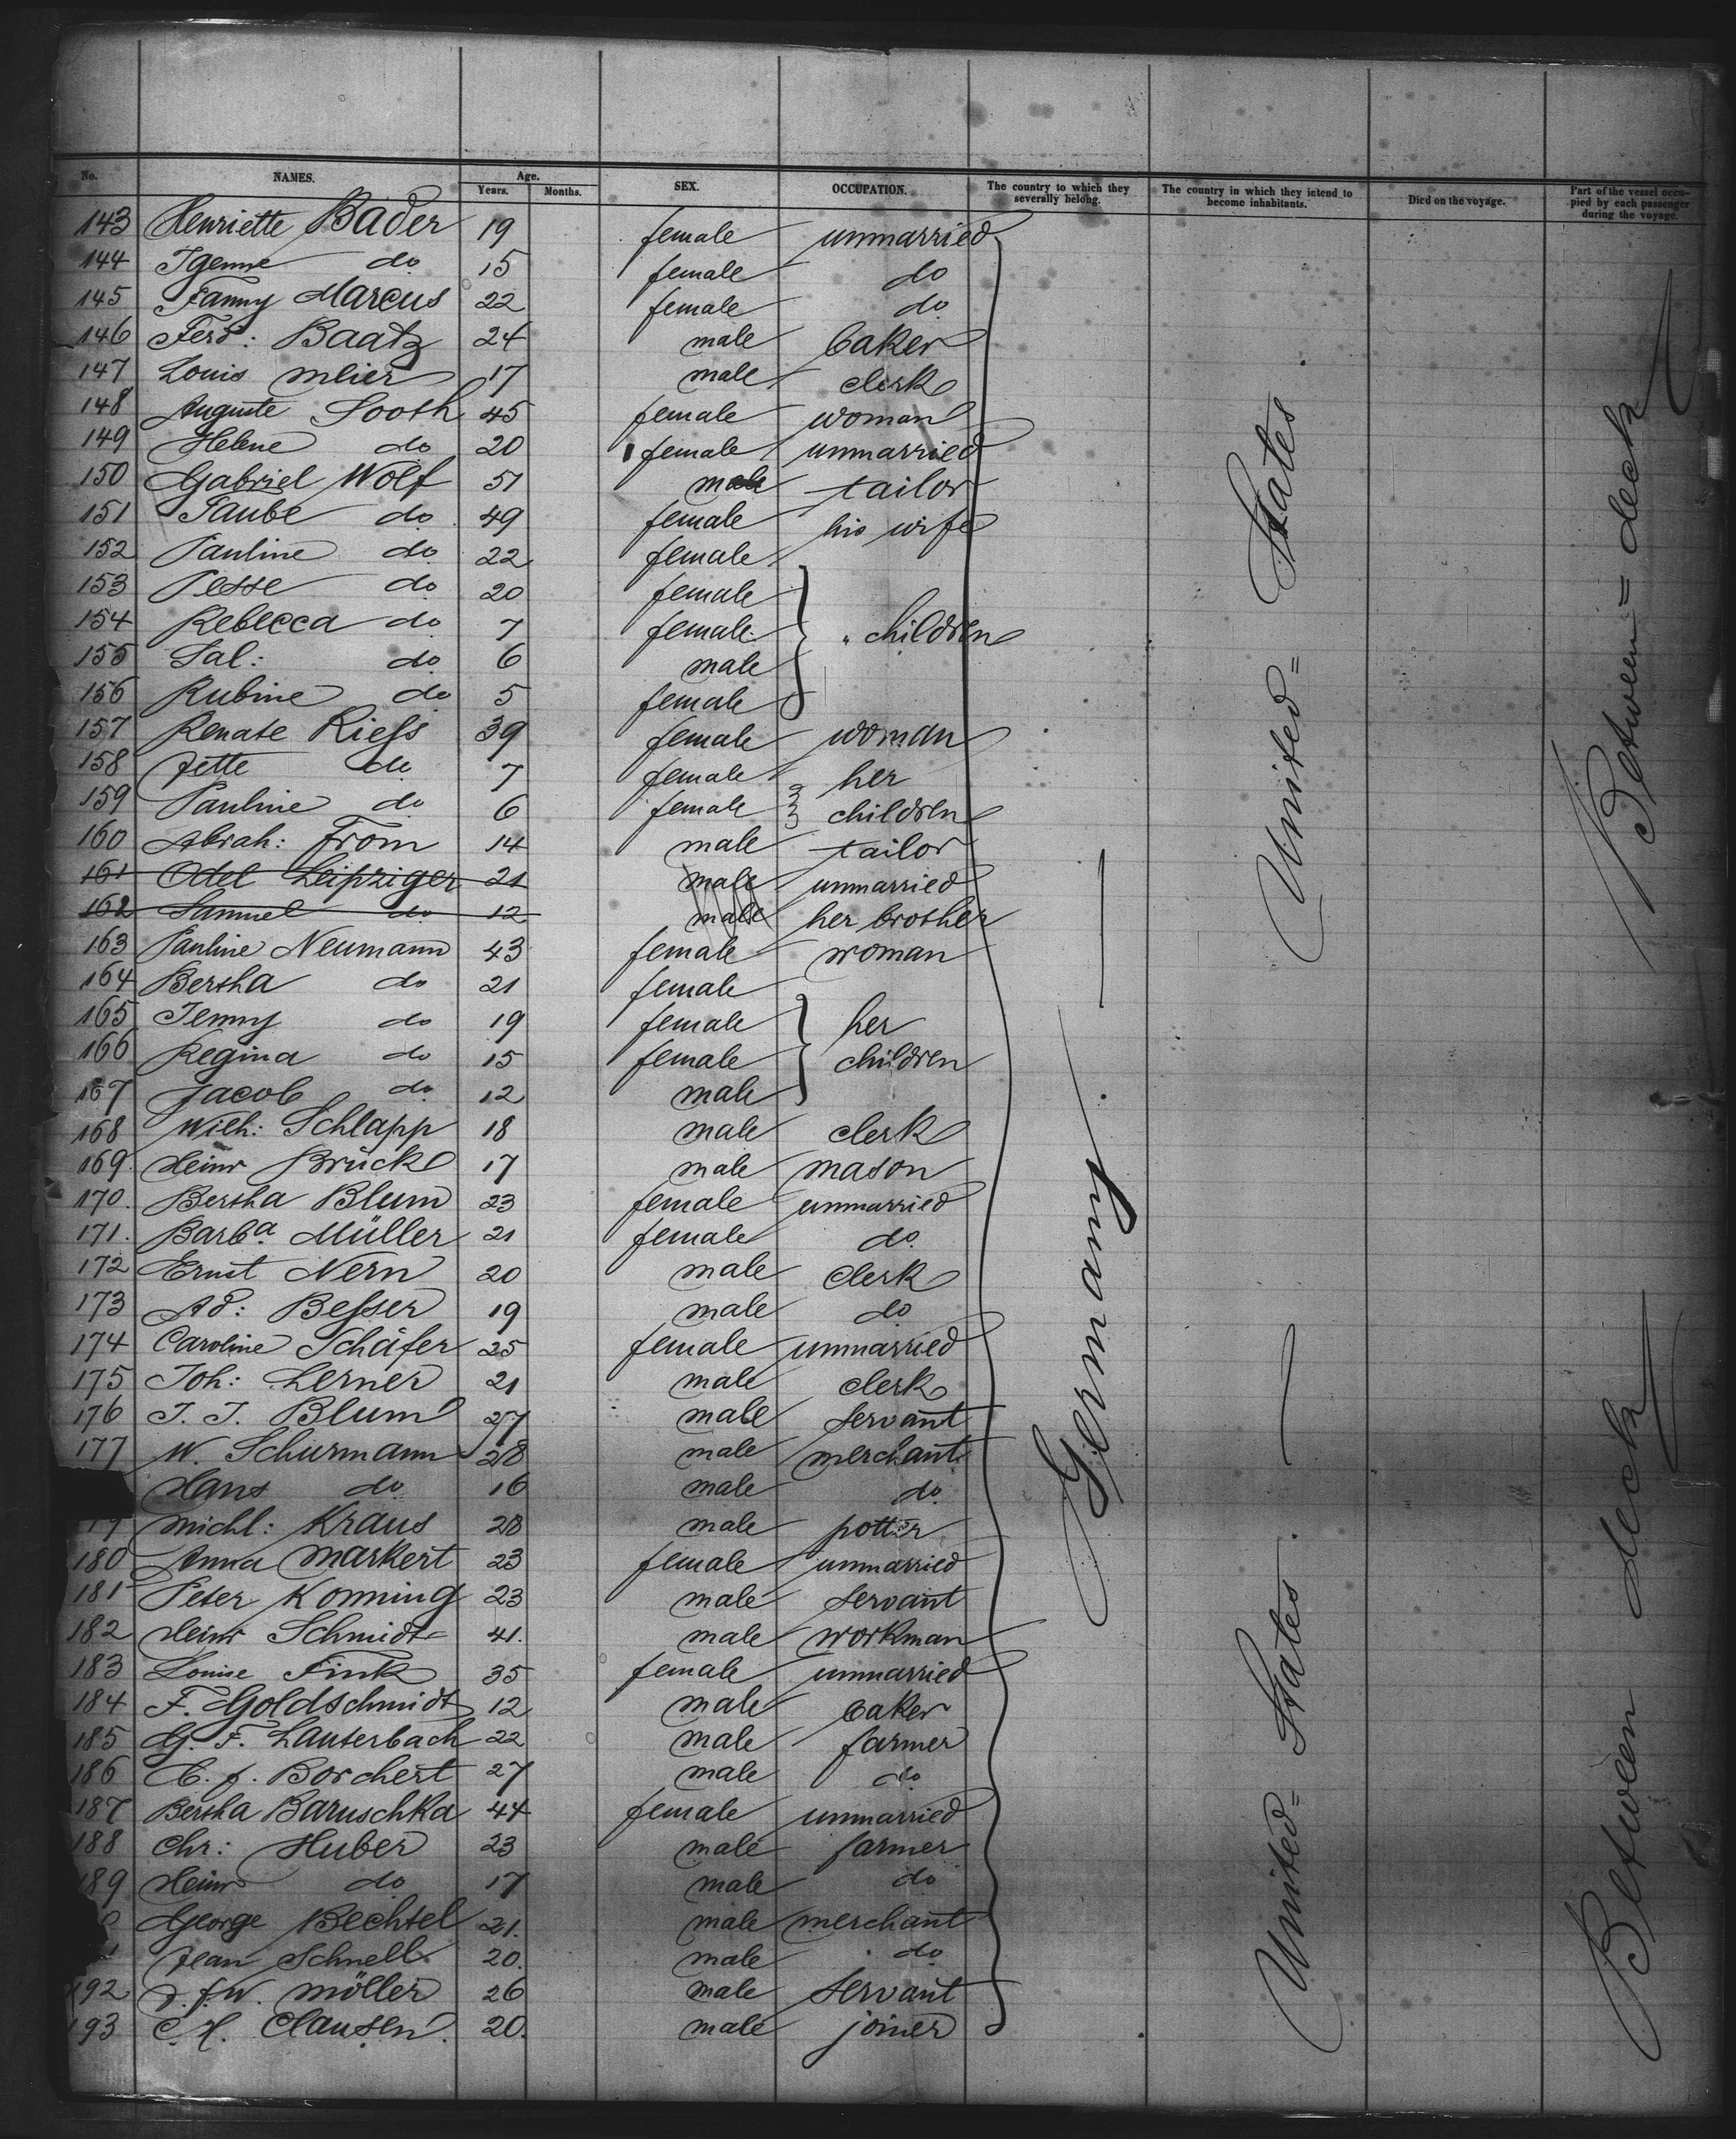 No. NAMES. Age. Years. Months. SEX. OCCUPATION. The country to which they severally belong. The country in which they intend to become inhabitants. Died on the voyage. Part of the vessel occupied by each passenger during the voyage.
143 Henriette Bader 19 female unmarried
144 do 15 female do
145 Fanny Marcus 22 female do
146 Ferd: Baatz 24 male baker
147 Louis Meier 17 male clerk
148 Auguste Sooth 45 female woman
149 Helene do 20 female unmarried
150 Gabriel Wolf 51 male tailor
151 Taube do 49 female his wife
152 Pauline do 22 female
153 Pesse do 20 female
154 Rebecca do 7 female " children
155 Sal: do 6 male
156 Rubine do 5 female
157 Renate Riess 39 female woman
158 Jette do 7 female her
159 Pauline do 6 female children
160 Abrah: From 14 male tailor
161 Odel Leipziger 21 male unmarried
162 Samuel do 12 male her brother
163 Pauline Neumann 43 female woman
164 Bertha do 21 female
165 Jenny do 19 female her
166 Regina do 15 female children
167 Jacob do 12 male
168 Wilh: Schlapp 18 male clerk
169. Heinr Brück 17 male mason
170. Bertha Blum 23 female unmarried
171. Barba Müller 21 female do
172 Ernst Nern 20 male clerk
173 Ad: Besser 19 male do
174 Caroline Schäfer 25 female unmarried
175 Joh: Lerner 21 male clerk
176 J. J. Blum 27 male servant
177 W. Schurmann 28 male merchant
Hans do 16 male do
79 Michl: Kraus 28 male potter
180 Anna Markert 23 female unmarried
181 Peter Konning 23 male servant
182 Heinr Schmidt 41. male workman
183 Louise Fink 35 female unmarried
184 F. Goldschmidt 12 male baker
185 G. F. Lauterbach 22 male farmer
186 C. F. Borchert 27 male do
187 Bertha Baruschka 44 female unmarried
188 Chr: Huber 23 male farmer
189 Heinr do 17 male do
George Bechtel 21. male merchant
Jean Schnell 20. male do
192 J. F. W. Möller 26 male servant
193 C. H. Clausen. 20. male joiner
Germany
United= States.
United= States.
Between= deck
Between deck